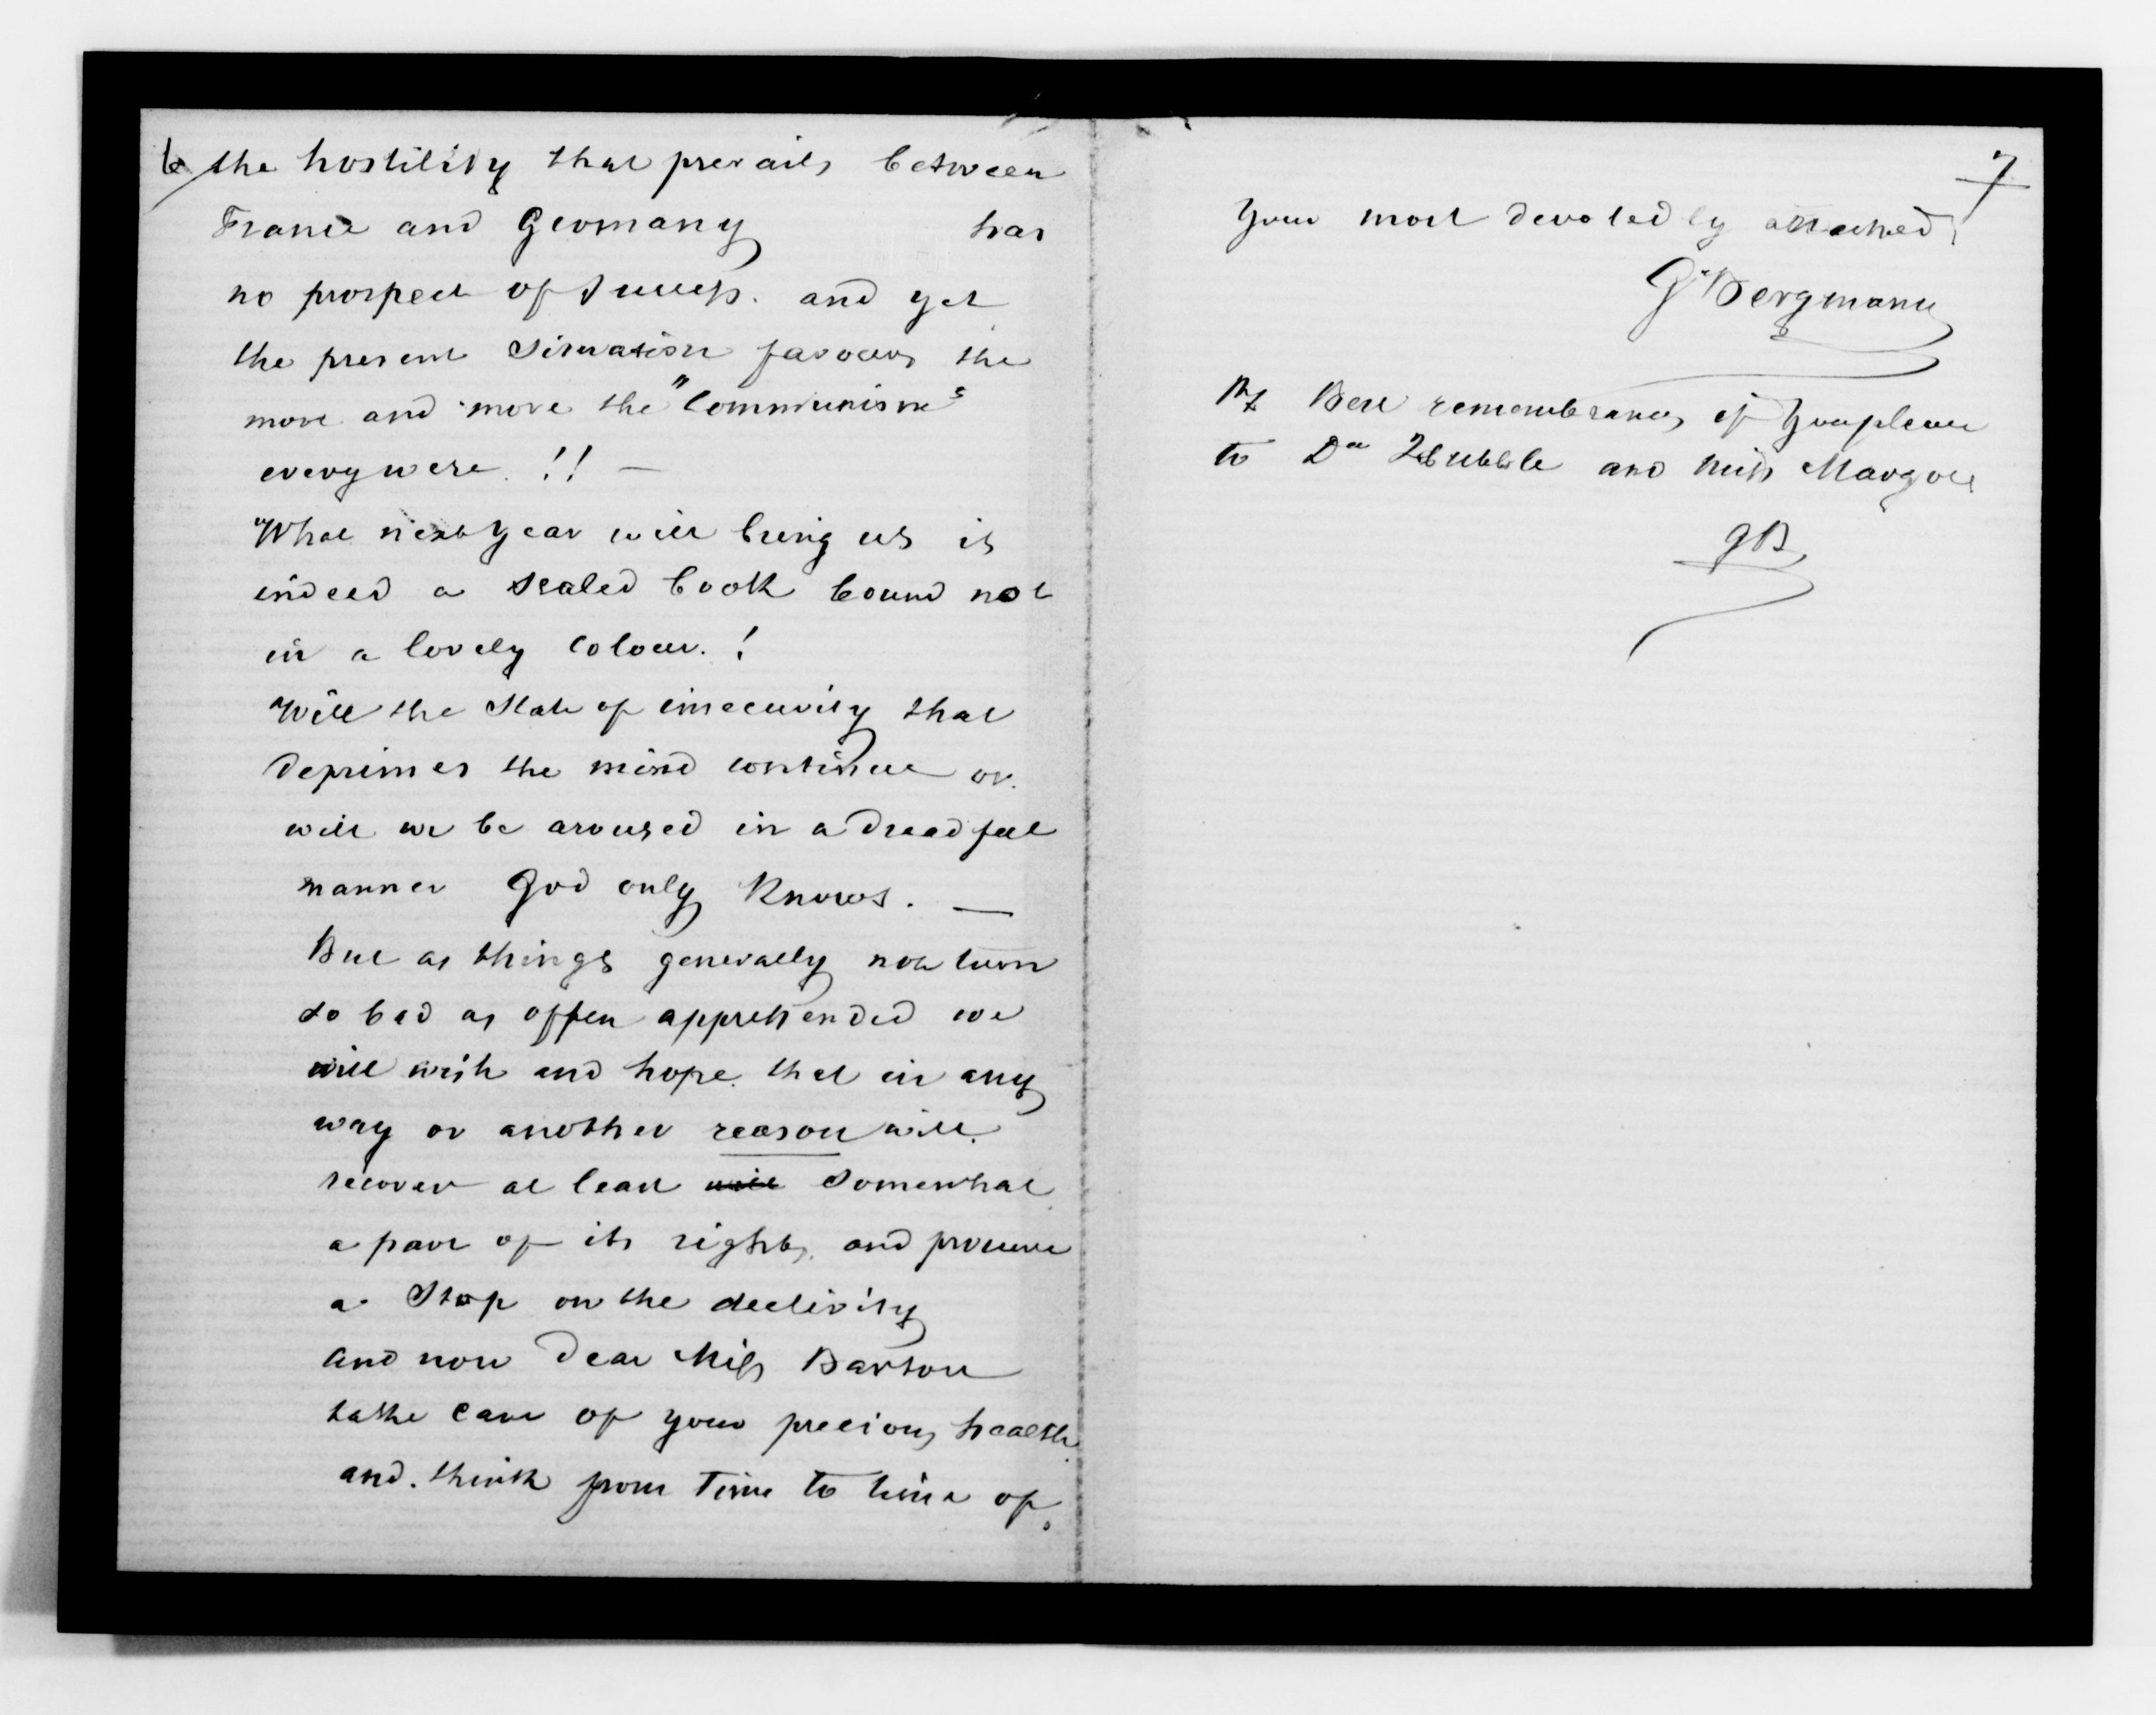 6 the hostility that prevails between
France and Germany has
no prospect of success. and yet
the present situation favours the
more and more the "Communism"
everywere !! —
What next year will bring us is
indeed a sealed book bound not
in a lovely colour. !
Will the state of insecurity that
deprimes the mind continue or
will we be aroused in a dreadful
manner God only Knows. —
But as things generally not turn
so bad as offen apprehended we
will wish and hope that in any
way or another reason will
recover at least will somewhat
a part of its rights, and procure
a Stop on the declivity
and now Dear Miss Barton
take care of your precious health
and think from Time to time of
7
Your most devotedly attached
G Bergmann
My Best remembrances if you please
to Dr Hubble and Miss
GB